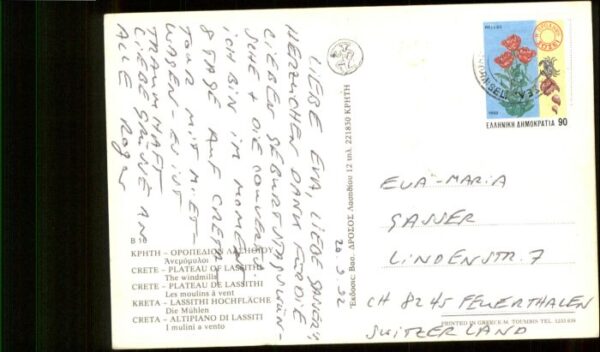 LIEBE EVA, LIEBE GASSER'S
HERZLICHEN DANK FÜR DIE
LIEBEN GEBURTSTAGSWÜN-
SCHE + DIE COUVERTS.
ICH BIN IM MOMENT
8 TAGE AUF CRETA,
TOUR MIT MIET-
WAGEN - ES IST
TRAUMHAFT
LIEBE GRÜSSE AN
ALLE Roger
B 16
ΚΡΗΤΗ - ΟΡΟΠΕΔΙΟΝ ΛΑΣΗΘΙΟΥ
Ανεμόμυλοι
CRETE - PLATEAU OF LASSITHI
The windmills
CRETE - PLATEAU DE LASSITHI
Les moulins à vent
KRETA - LASSITHI HOCHFLÄCHE
Die Mühlen
CRETA - ALTIPIANO DI LASSITI
I mulini a vento
Ἐκδοσις: Βασ. ΔΡΟΣΟΣ Λασηθίου 12 τηλ. 221830 ΚΡΗΤΗ
20.5.92
ΕΛΛΗΝΙΚΗ ΔΗΜΟΚΡΑΤΙΑ 90
EVA-MARIA
GASSER
LINDENSTR. 7
CH 8245 FEUERTHALEN
SWITZERLAND
PRINTED IN GREECE M. TOUMBIS TEL.